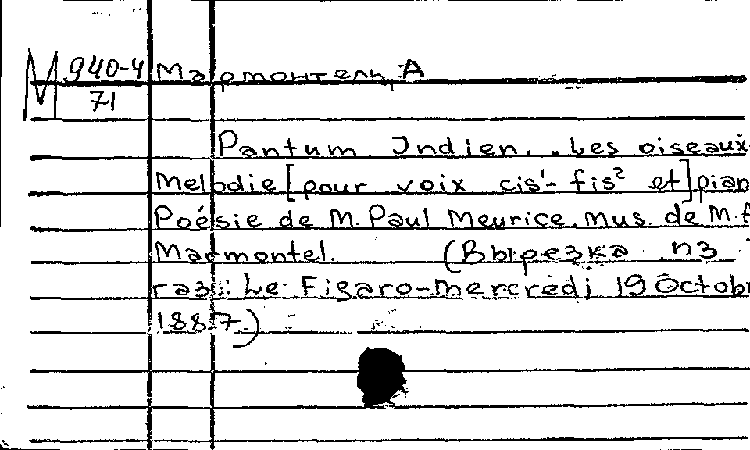 М 940-4 Мармонтель, А
71
Pantum Indien. „Les oiseaux
Melodie [pour voix cis¹- fis² et] pian
Poésie de M. Paul Meurice. Mus. de M. A
Marmontel. (Вырезка из
газ.: Le Figaro-mercredi 19 Octobr
1887.)